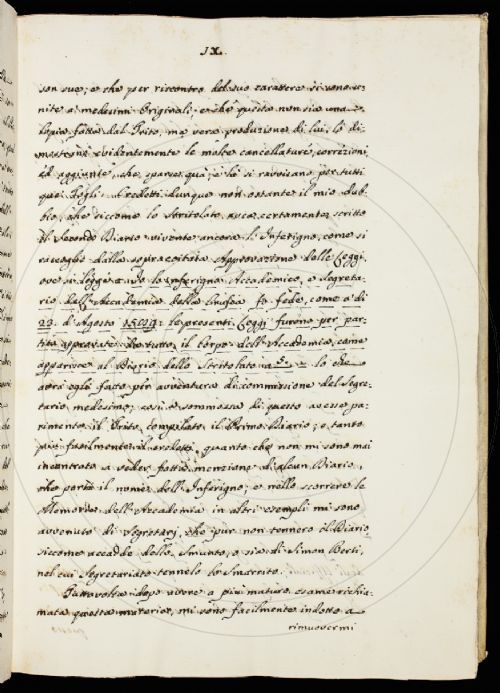 IX.
son sue; e che per riscontro del suo carattere si sono u-
nite a medesimi Originali; e che questa non sia una
Copia fatta dal Trito, ma vera produzione di lui, lo di-
mostrano evidentemente le molte cancellature, correzioni,
ed aggiunte, che sparse quà, e là si ravvisano per tutti
quei Fogli. Credetti dunque non ostante il mio dub-
bio, che siccome lo Stritolato avea certamente scritto
il Secondo Diario vivente ancora l'Inferigno, come si
raccoglie dalla sopraccitata Approvazione delle Leggi,
ove si legge = Io lo Inferigno Accademico, e Segreta-
rio dell'Accademia della Crusca fo fede, come a dì
22. d'Agosto le presenti Leggi furono per par-
tito approvate da tutto il Corpo dell'Accademia, come
apparisce al Diario dello Stritolato = lo che
avrà egli fatto per avventura di commissione del Segre-
tario medesimo; così a sommossa di questo avesse pa-
rimente il Trito compilato il Primo Diario; e tanto
più facilmente il credetti, quanto che non mi sono mai
incontrato a veder fatta menzione di alcun Diario,
che porti il nome dell'Inferigno; e nello scorrere le
Memorie dell'Accademia in altri esempli mi sono
avvenuto di Segretarj, che pur non tennero il Diario,
siccome accadde dello Smunto, o sia di Simon Berti,
nel cui Segretariato tennelo lo Smarrito.
Tuttavolta dopo avere a più maturo esame richia-
mata questa materia, mi sono facilmente indotto a
rimuovermi